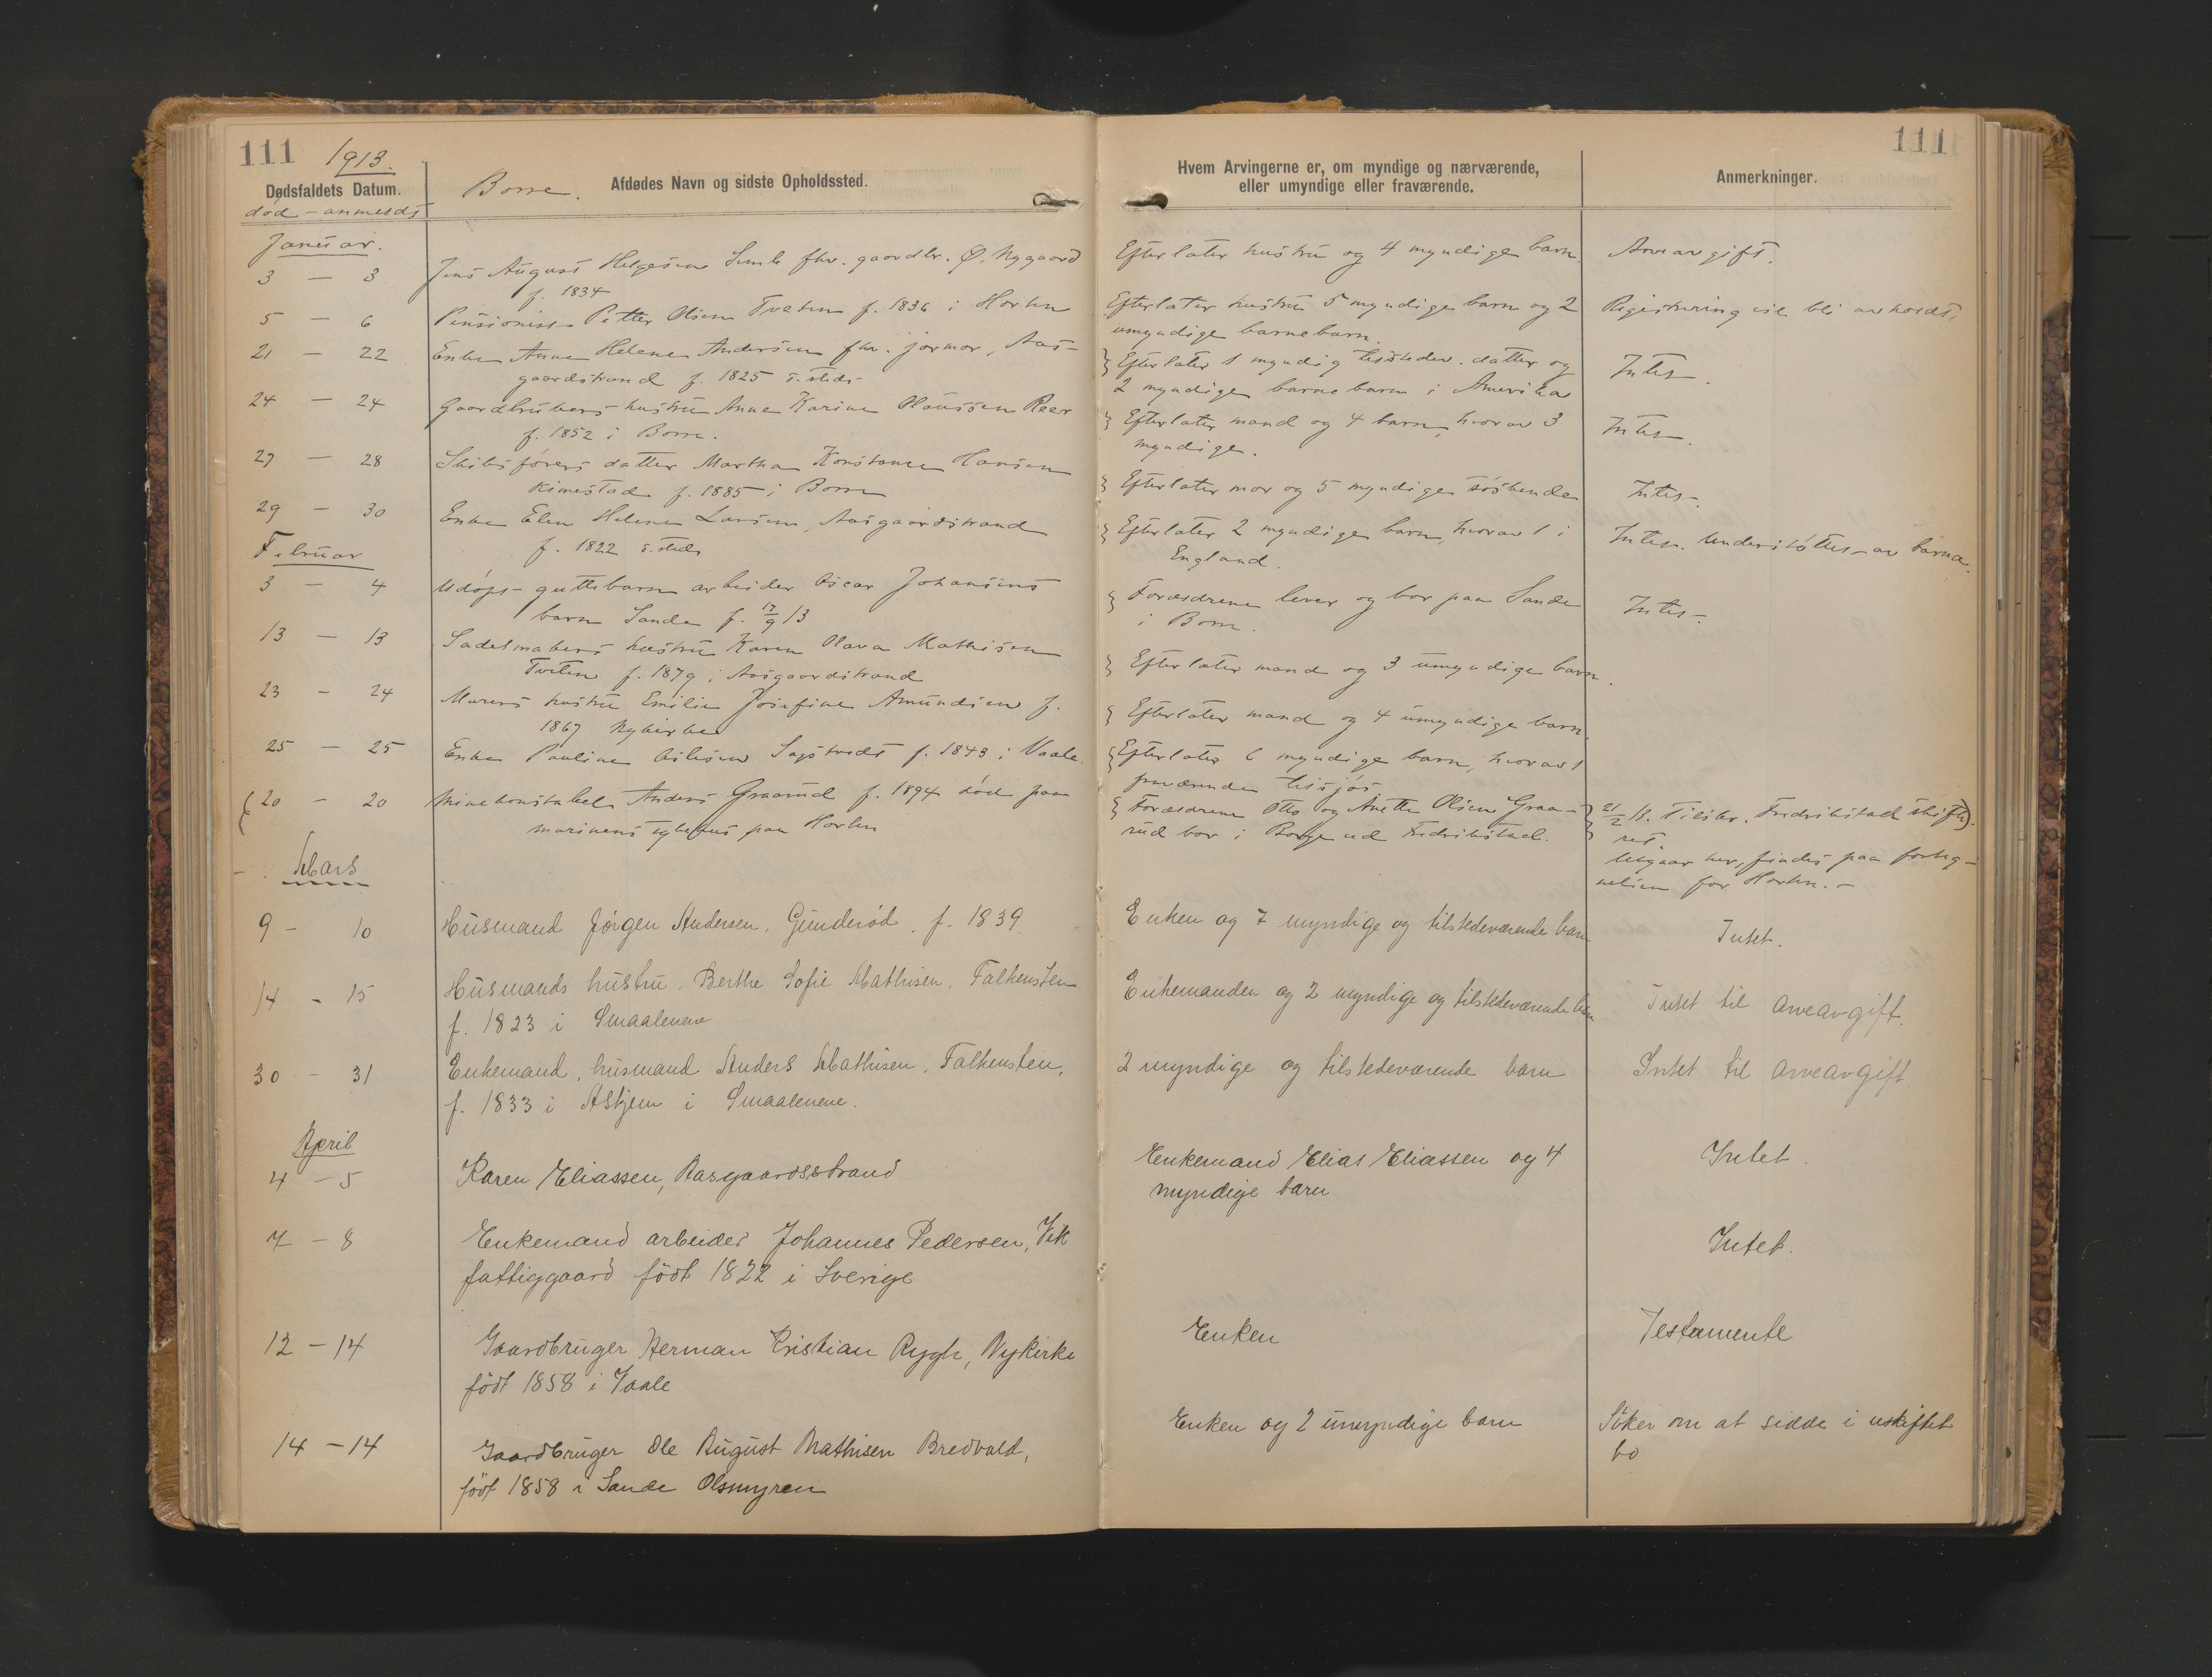 111
1913.
111
Dødsfaldets Datum.
død - anmeldt
Borre. Afdødes Navn og sidste Opholdssted.
Hvem Arvingerne er, om myndige og nærværende,
eller umyndige eller fraværende.
Anmerkninger.
Januar.
3 - 3 Jens August Helgesen Semb fhv. gaardbr. Ø. Nygaard
f. 1834
Efterlater hustru og 4 myndige barn.
Arveavgift.
5 - 6 Pensionist Petter Olsen Tveten f. 1836 i Horten
Efterlater hustru 5 myndige barn og 2
umyndige barnebarn.
Registrering vil bli avholdt.
21 - 22 Enke Anne Helene Andersen fhv. jormor, Aas-
gaardstrand f. 1825 s. steds
Efterlater 1 myndig tilstedev. datter og
2 myndige barnebarn i Amerika
Intet.
24 - 24 Gaardbrukers hustru Anne Karine Hanssen Reer
f. 1852 i Borre.
Efterlater mand og 4 barn, hvorav 3
myndige.
Intet.
27 - 28 Skibsførers datter Martha Konstance Hansen
Kimestad f. 1885 i Borre
Efterlater mor og 5 myndige søskende
Intet.
29 - 30 Enke Elen Helene Larsen, Aasgaardstrand
f. 1822 s. steds
Efterlater 2 myndige barn, hvorav 1 i
England.
Intet. Understøttes av barna.
Februar
3 - 4 Udøpt guttebarn arbeider Oscar Johansens
barn Sande f. 17/9 13
Forældrene lever og bor paa Sande
i Borre.
Intet.
13 - 13 Sadelmakers hustru Karen Olava Mathisen
Tveten f. 1879 i Aasgaardstrand
Efterlater mand og 3 umyndige barn.
23 - 24 Murers hustru Emilie Josefine Amundsen f.
1867 Nykirke
Efterlater mand og 4 umyndige barn.
25 - 25 Enke Pauline Asilsen Sagstvedt f. 1843 i Vaale.
Efterlater 6 myndige barn, hvorav 1
fraværende tilsjøs
20 - 20 Minekonstabel Anders Graarud f. 1894 død paa
marinens sykehus paa Horten
Forældrene Otto og Anette Olsen Graa-
rud bor i Borge ved Fredrikstad.
21/2 13. Tilskr. Fredrikstad skifte-
ret.
Utgaar her, findes paa forteg-
nelsen for Horten. -
Mars
9 - 10 Husmand Jørgen Andersen, Gunderød. f. 1839
Enken og 7 myndige og tilstedeværende barn
Intet.
14 - 15 Husmands hustru. Berthe Sofie Mathisen, Falkensten
f. 1823 i Smaalenene
Enkemanden og 2 myndige og tilstedeværende barn
Intet til arveavgift.
30 - 31 Enkemand, husmand Anders Mathisen, Falkensten,
f. 1833 i Askjem i Smaalenene.
2 myndige og tilstedeværende barn
Intet til arveavgift
April
4 - 5 Karen Eliassen, Aasgaardsstrand
Enkemand Elias Eliassen og 4
myndige barn
Intet.
7 - 8 Enkemand arbeider Johannes Pedersen, Vik
fattiggaard født 1822 i Sverige
Intet.
12 - 14 Gaardbruger Herman Kristian Rygh, Nykirke
født 1858 i Vaale
Enken
Testamente
14 - 14 Gaardbruger Ole August Mathisen Bredvald,
født 1858 i Sande Olsmyren
Enken og 2 umyndige barn
Søker om at sidde i uskiftet
bo